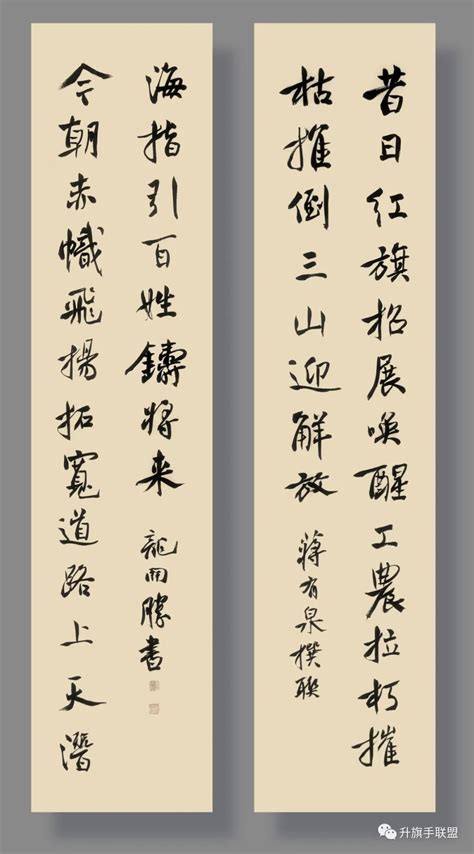 昔日紅旗招展喚醒工農拉朽摧
枯推倒三山迎解放
蔣有泉撰聯
今朝赤幟飛揚拓寬道路上天潛
海指引百姓鑄將来
龍開勝書
升旗手联盟